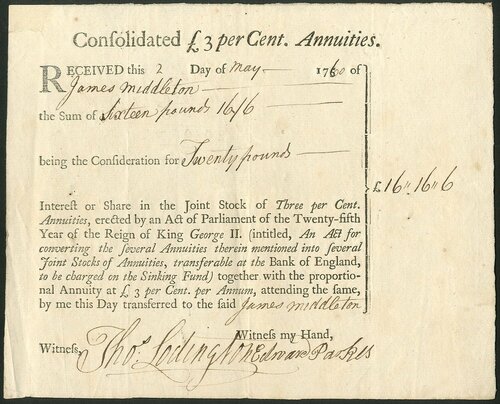 Conſolidated £ 3 per Cent. Annuities.
RECEIVED this 2 Day of May 1760 of
James Middleton
the Sum of Sixteen pounds 16/6
being the Conſideration for Twenty pounds
£ 16" 16" 6
Intereſt or Share in the Joint Stock of Three per Cent.
Annuities, erected by an Act of Parliament of the Twenty-fifth
Year of the Reign of King George II. (intitled, An Act for
converting the ſeveral Annuities therein mentioned into ſeveral
Joint Stocks of Annuities, transferable at the Bank of England,
to be charged on the Sinking Fund) together with the proportio-
nal Annuity at £ 3 per Cent. per Annum, attending the ſame,
by me this Day transferred to the ſaid James Middleton
Witneſs my Hand,
Witneſs, Thos Lodington Edward Parkes